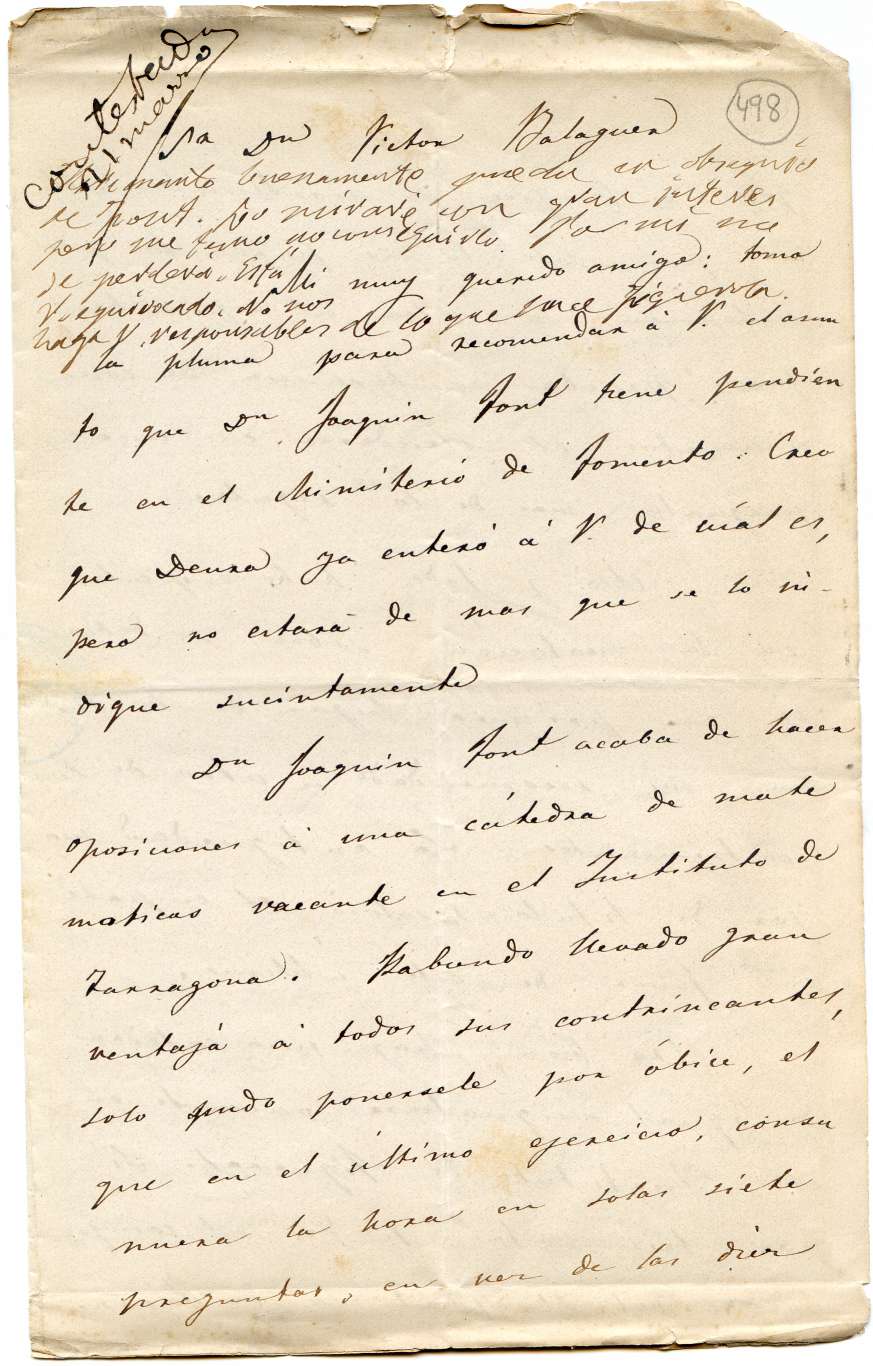 contestada
11 marzo
498
Sr Dn Victor Balaguer
cuanto buenamente pueda en obsequio
de Font. Lo miraré con gran interes
pero me temo no conseguirlo. Por mi no
se perderá. Está
V. equivocado. No nos
haga V. responsables de lo que hace Figuerola.
Mi muy querido amigo: tomo
la pluma para recomendar á V. el asun
to que Dn Joaquin Font tiene pendien
te en el Ministerio de Fomento. Creo
que ya enteró á V. de cúal es,
pero no estará de mas que se lo in-
dique sucintamente
Dn Joaquin Font acaba de hacer
oposiciones á una cátedra de mate
maticas vacante en el Instituto de
Tarragona. Habiendo llevado gran
ventajá á todos sus contrincantes,
solo pudo ponersele por óbice, el
que en el último ejercicio, consu
miera la hora en solas siete
preguntas, en vez de las diez